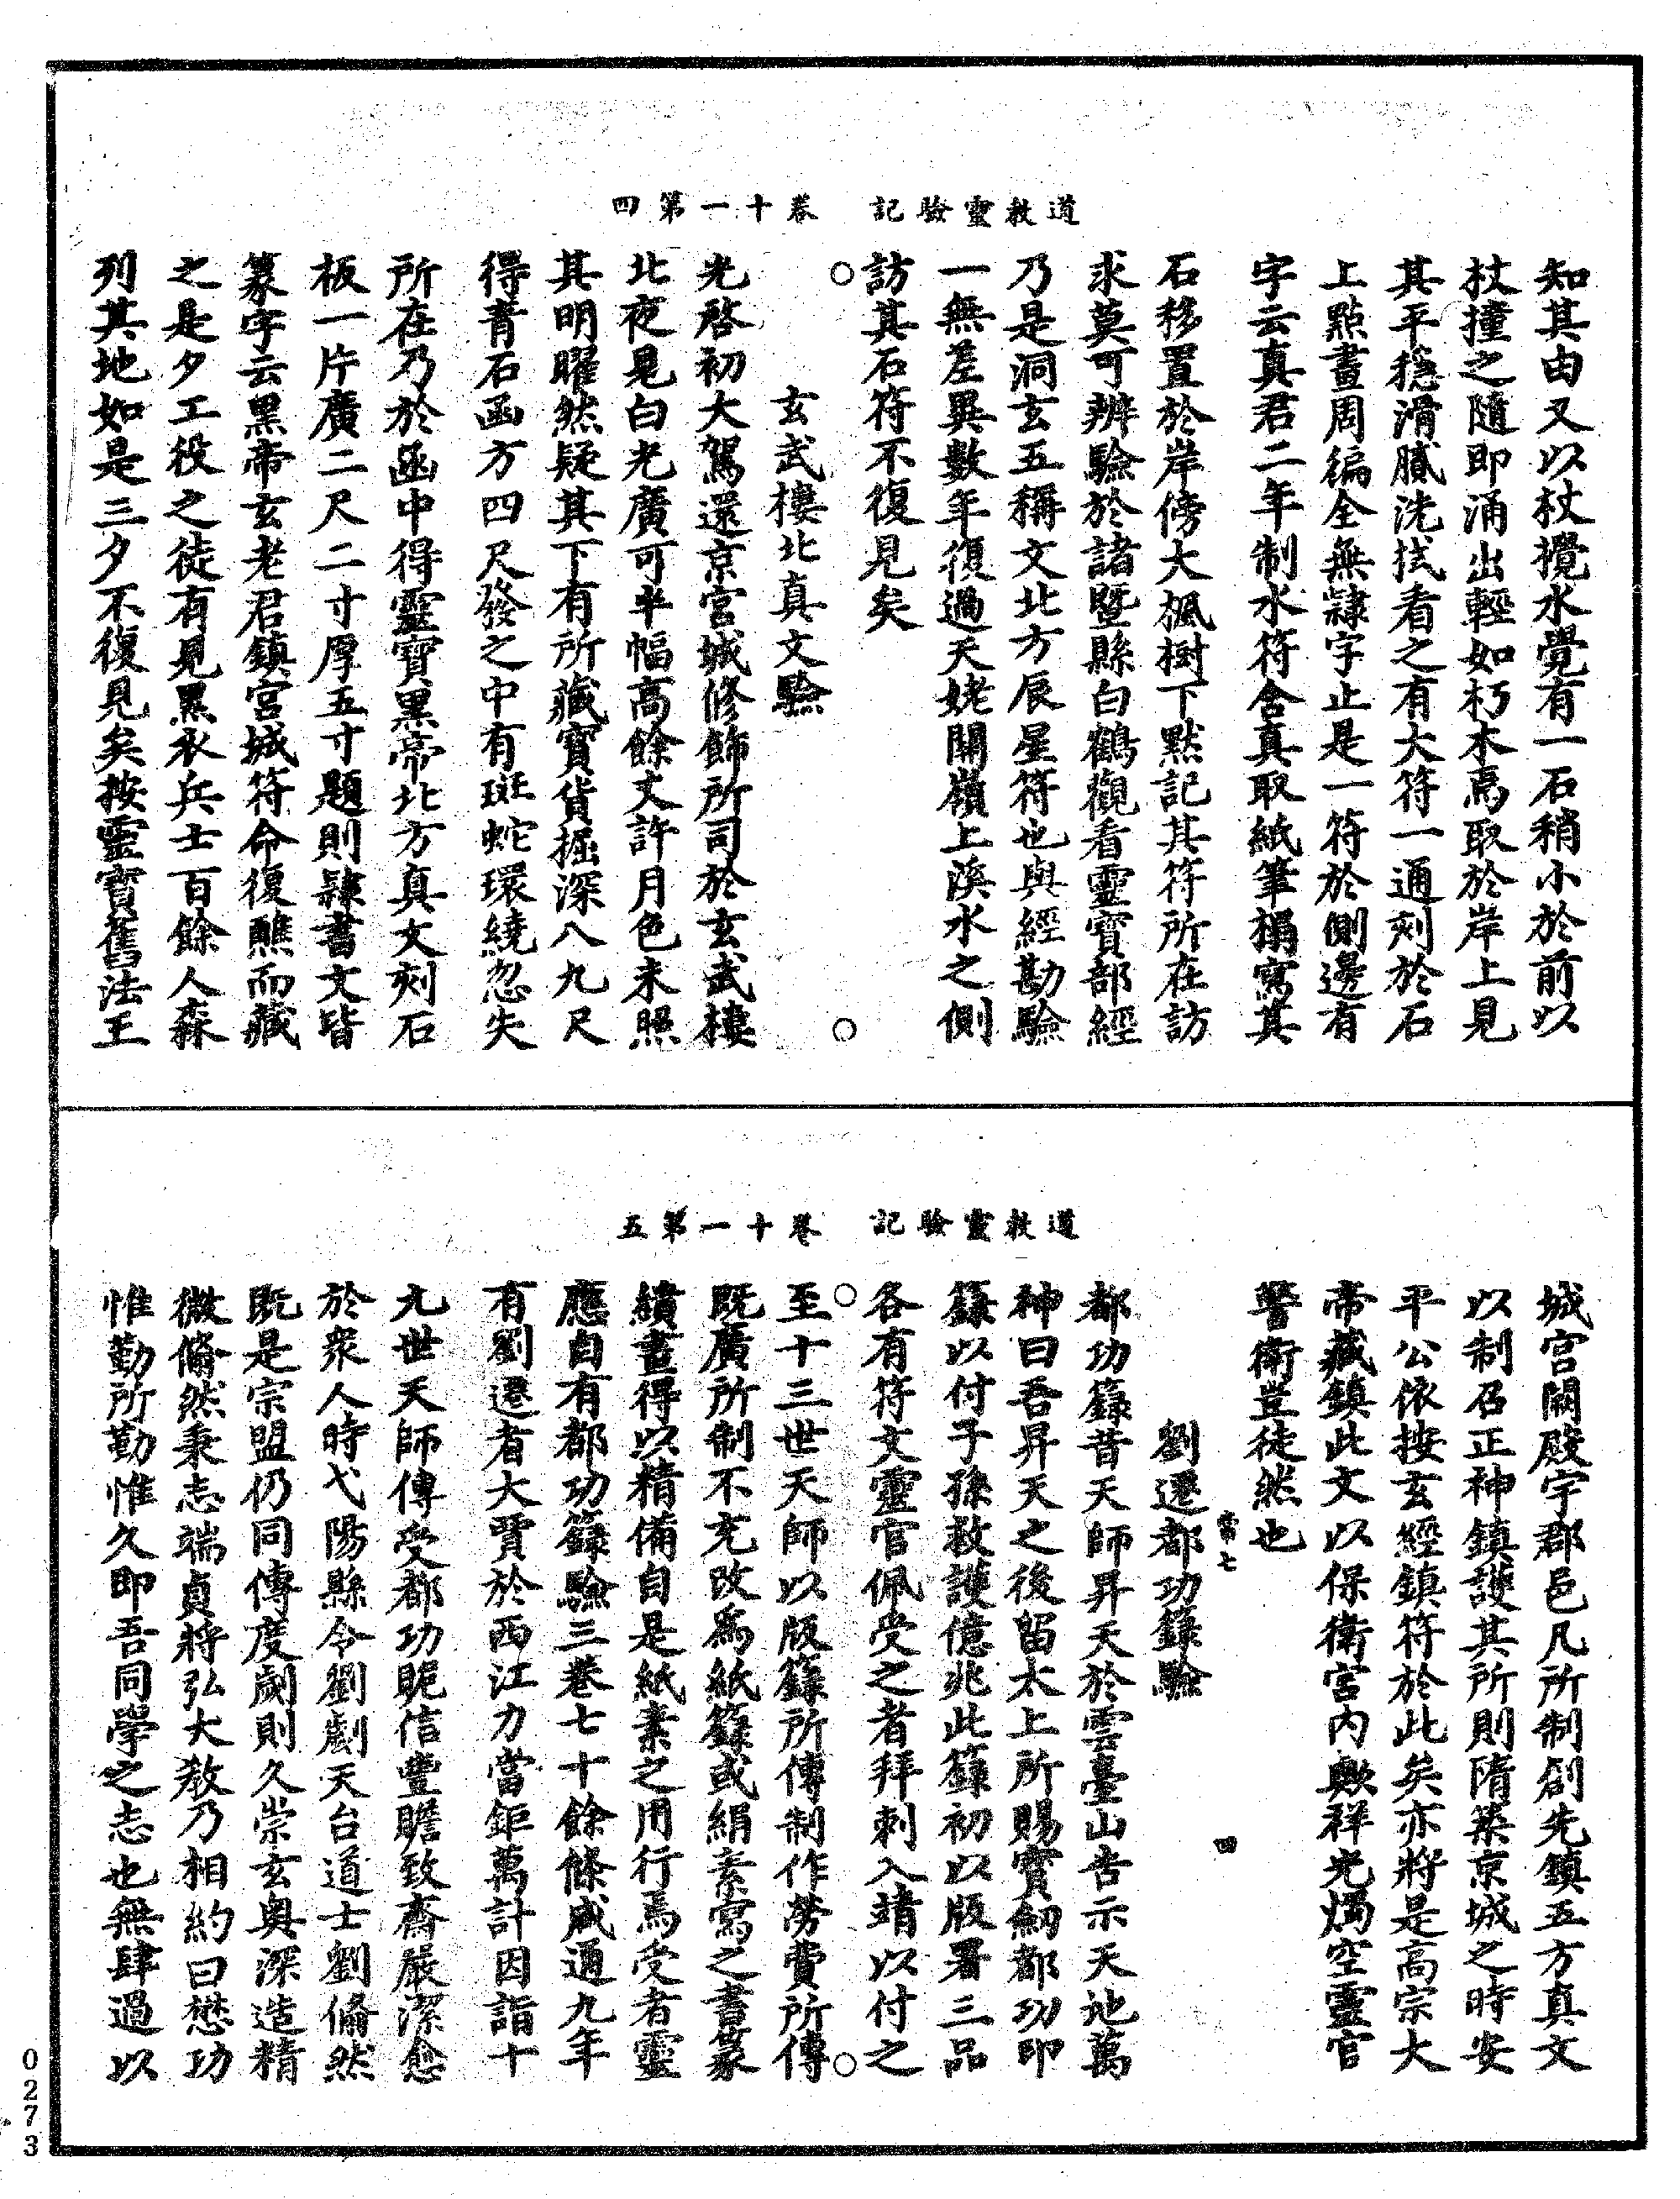 道教靈驗記　卷十一第四
知其由又以杖攪水覺有一石稍小於前以
杖撞之隨即涌出輕如朽木焉取於岸上見
其平穩滑膩洗拭看之有大符一通刻於石
上點畫周徧全無隸字止是一符於側邊有
字云真君二年制水符含真取紙筆搨寫其
石移置於岸傍大楓樹下默記其符所在訪
求莫可辨驗於諸暨縣白鶴觀看靈寶部經
乃是洞玄五稱文北方辰星符也與經勘驗
一無差異數年復過天姥關嶺上溪水之側
訪其石符不復見矣
玄武樓北真文驗
光啓初大駕還京宮城修飾所司於玄武樓
北夜見白光廣可半幅高餘丈許月色未照
其明曜然疑其下有所藏寶貨掘深八九尺
得青石函方四尺發之中有斑蛇環繞忽失
所在乃於函中得靈寶黑帝北方真文刻石
板一片廣二尺二寸厚五寸題則隸書文皆
篆字云黑帝玄老君鎮宮城符命復醮而藏
之是夕工役之徒有見黑衣兵士百餘人森
列其地如是三夕不復見矣按靈寶舊法王
道教靈驗記　卷十一第五
城宮闕殿宇郡邑凡所制創先鎮五方真文
以制召正神鎮護其所則隋築京城之時安
平公依按玄經鎮符於此矣亦將是高宗大
帝藏鎮此文以保衛宮內歟祥光燭空靈官
警衛豈徒然也
常七　四
劉遷都功籙驗
都功籙昔天師昇天於雲臺山告示天地萬
神曰吾昇天之後留太上所賜寶劍都功印
籙以付子孫救護億兆此籙初以版署三品
各有符文靈官佩受之者拜刺入靖以付之
至十三世天師以版籙所傳制作勞費所傳
既廣所制不充改為紙籙或絹素寫之書篆
繢畫得以精備自是紙素之用行焉受者靈
應自有都功籙驗三卷七十餘條咸通九年
有劉遷者大賈於西江力當鉅萬計因詣十
九世天師傳受都功貺信豐贍致齋嚴潔愈
於衆人時弋陽縣令劉劌天台道士劉翛然
既是宗盟仍同傳度劌則久崇玄奧深造精
微翛然秉志端貞將弘大教乃相約曰懋功
惟勤所勤惟久即吾同學之志也無肆過以
0273